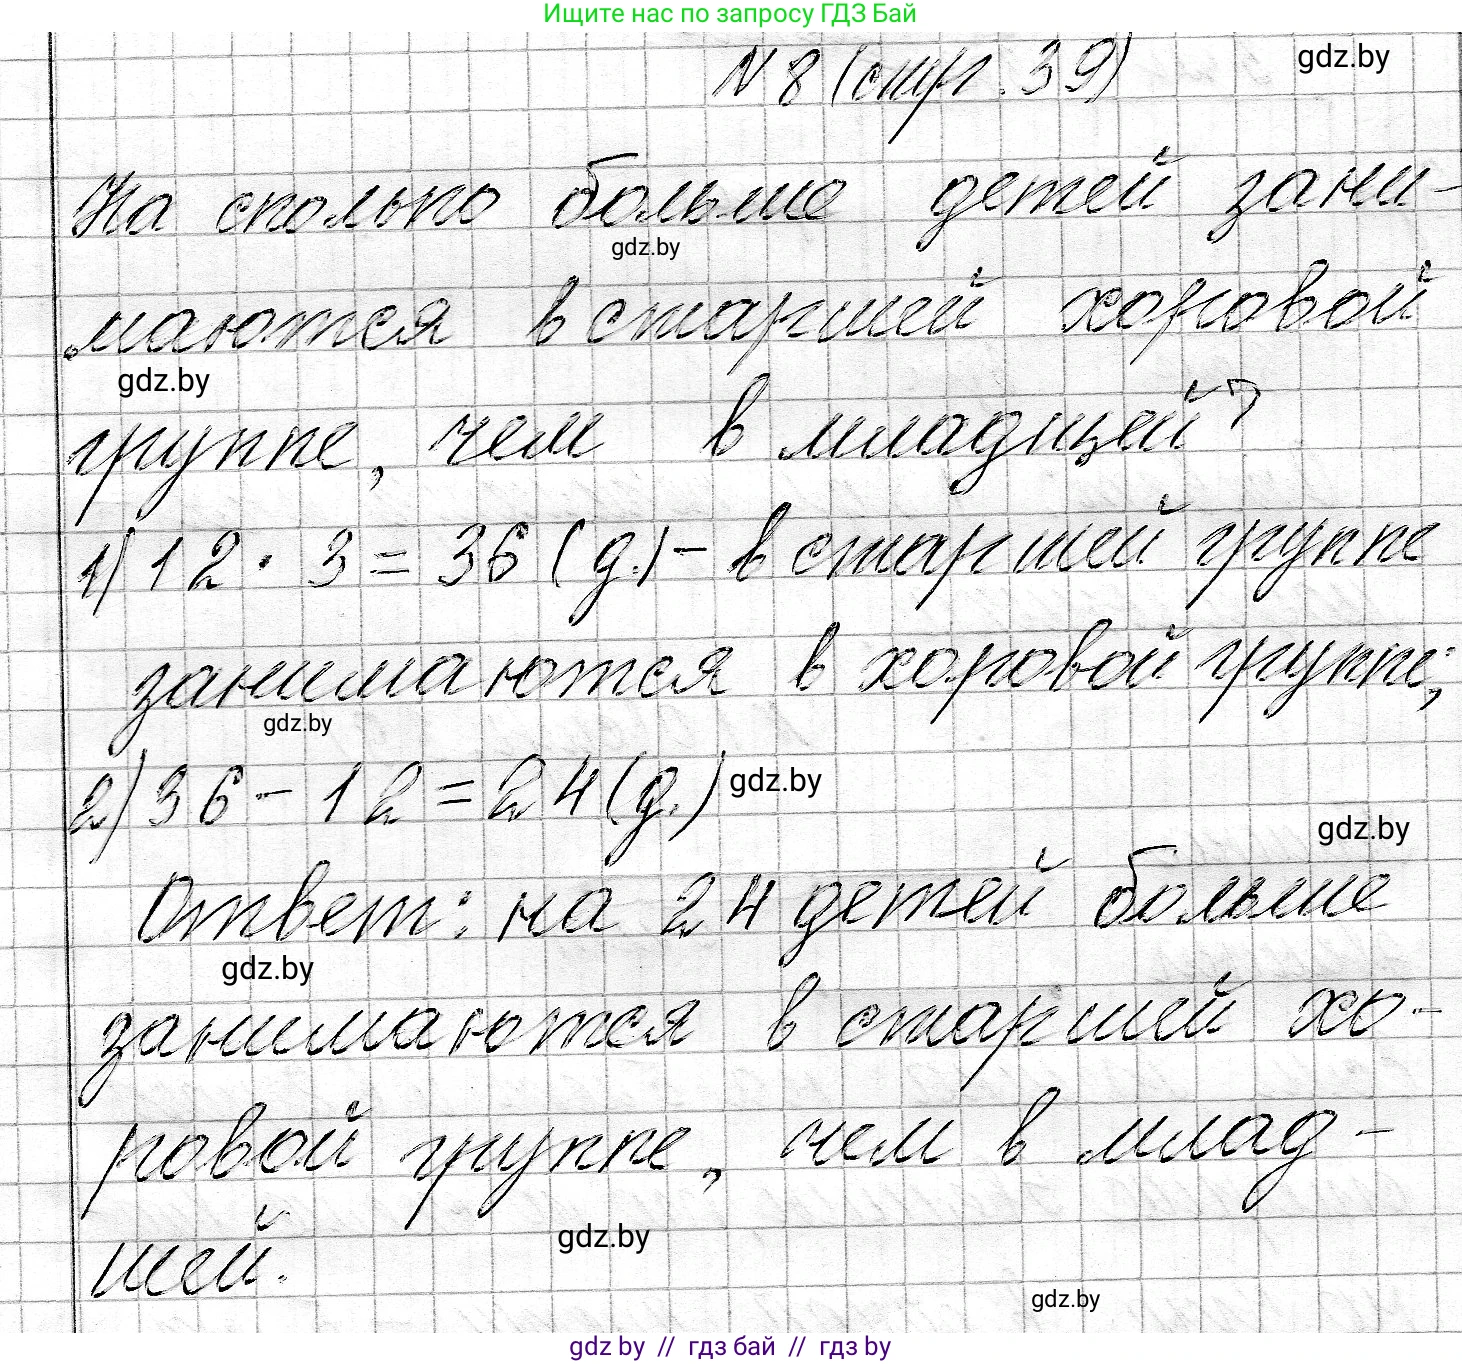 Ищите нас по запросу ГДЗ Бай
N 8 (стр. 39)
gdz.by
На сколько больше детей зани-
gdz.by
маются в старшей хоровой
gdz.by
группе, чем в младшей?
1) 12 · 3 = 36 (д.) - в старшей группе
занимаются в хоровой группе;
gdz.by
2) 36 - 12 = 24 (д.)
gdz.by
gdz.by
Ответ: на 24 детей больше
gdz.by
занимаются в старшей хо-
ровой группе, чем в млад-
шей.
gdz.by
gdz.by
gdz by // гдз бай // гдз by